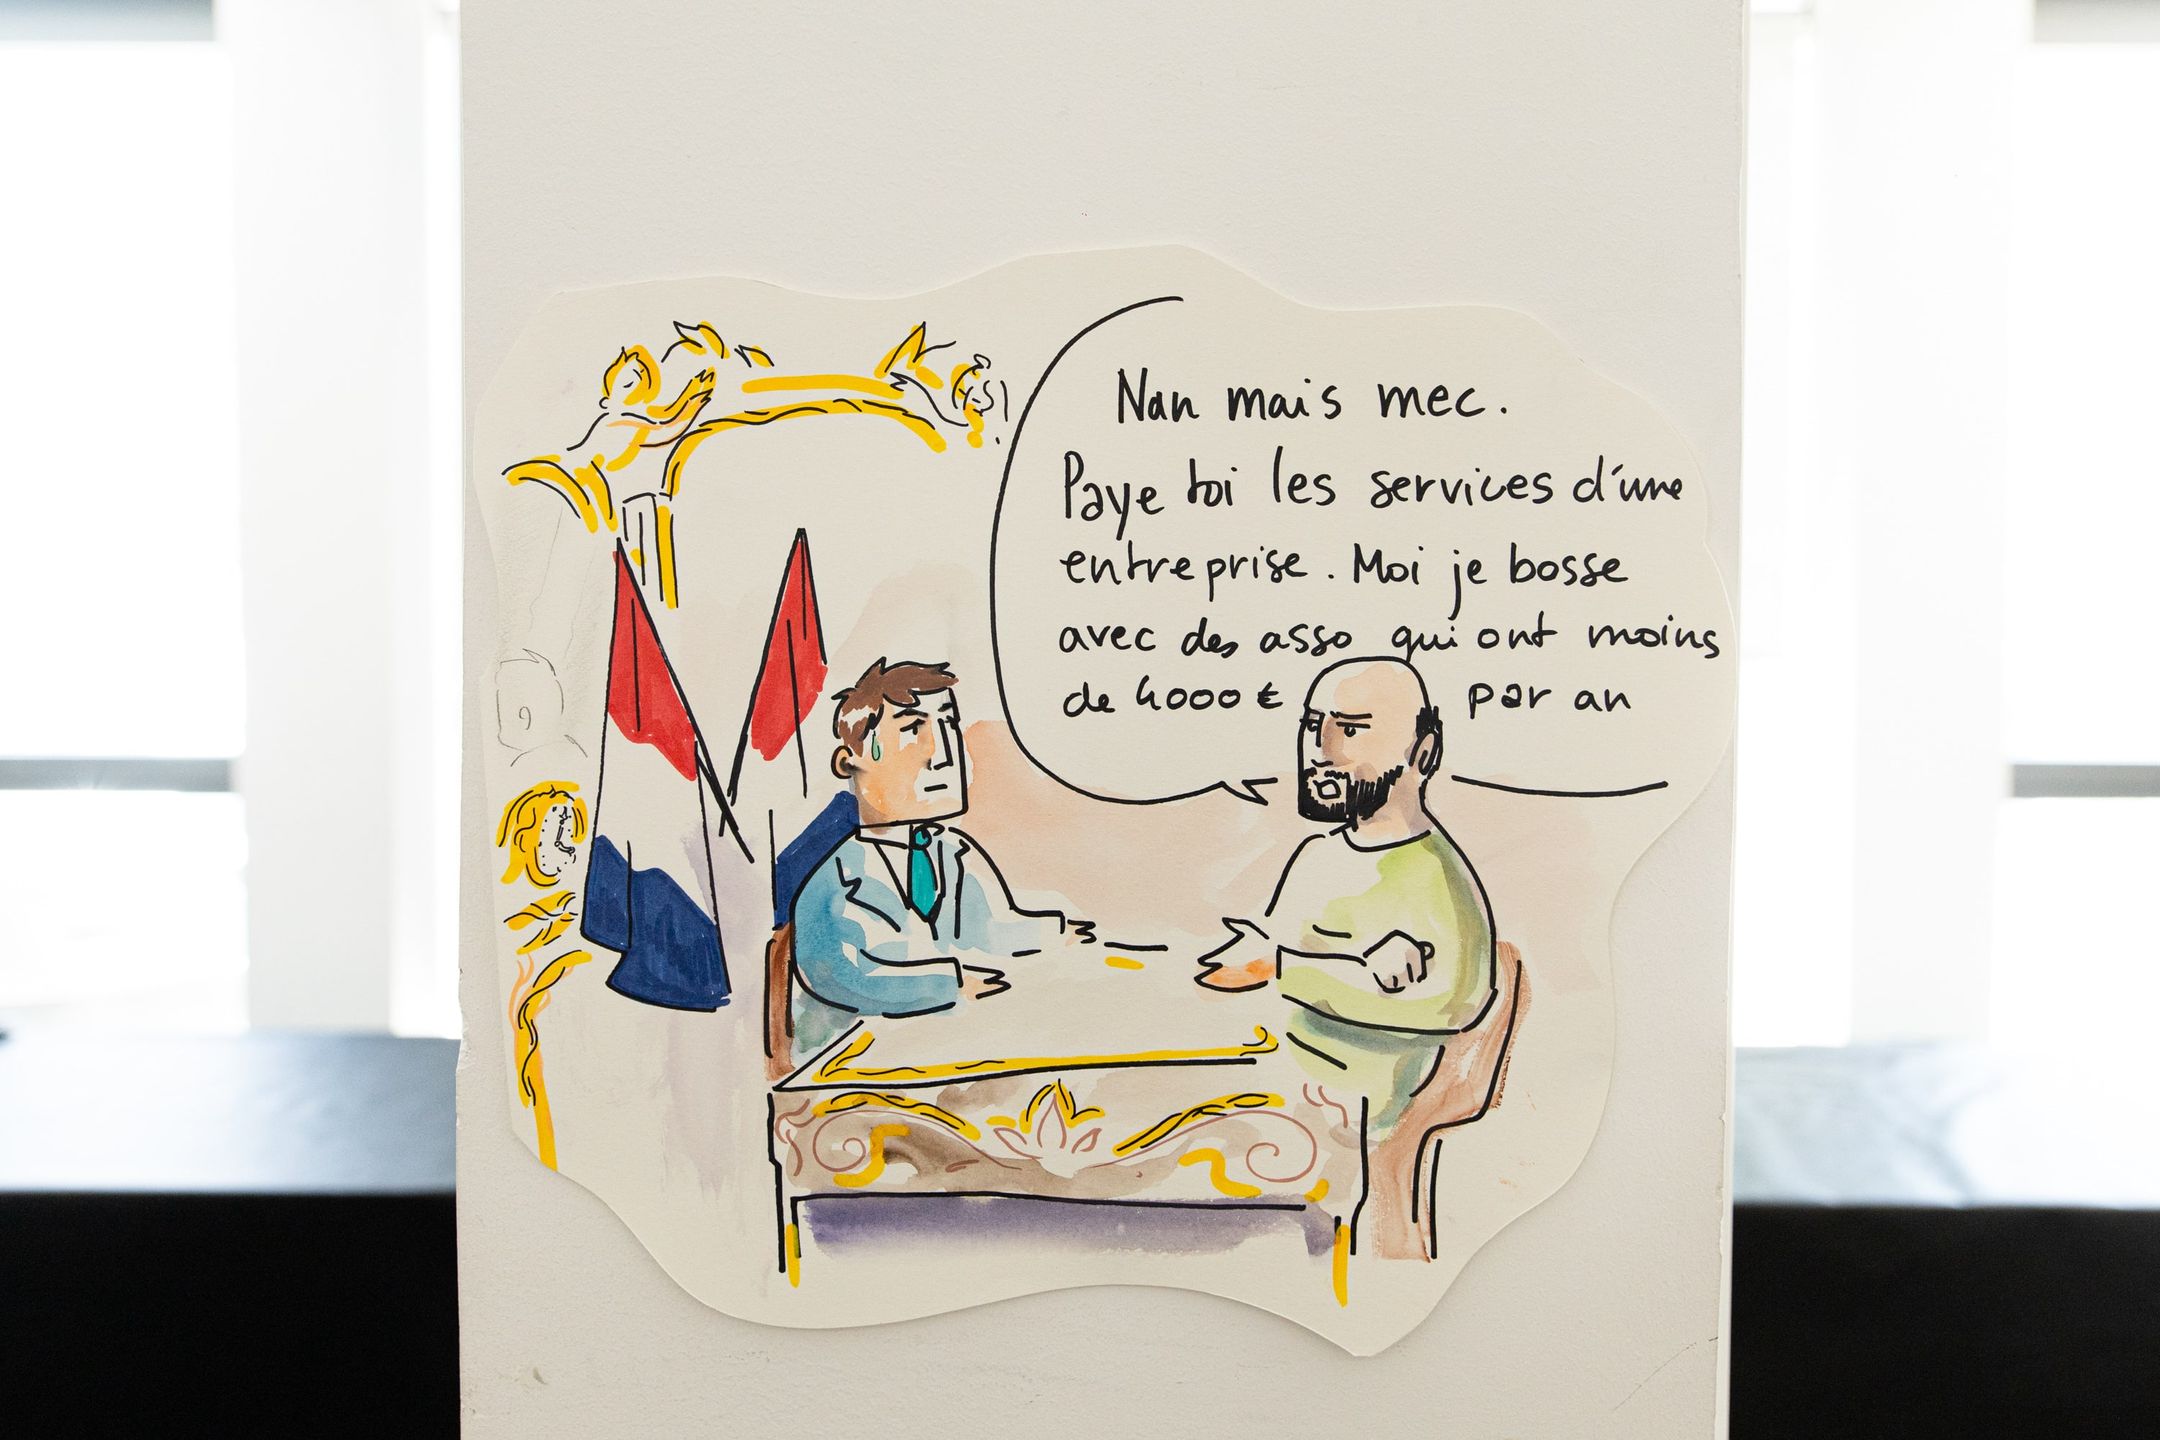 Nan mais mec.
Paye toi les services d'une
entreprise. Moi je bosse
avec des asso qui ont moins
de 4000 € par an